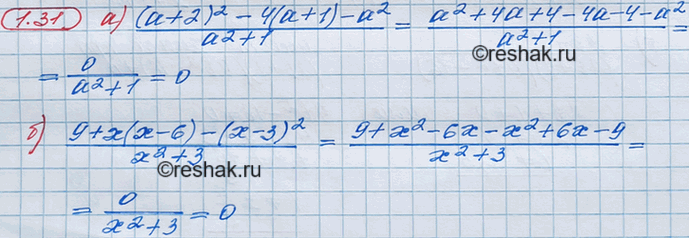 1.31 а) ((a+2)² - 4(a+1) - a²)/(a²+1) = (a²+4a+4-4a-4-a²)/(a²+1) =
= 0/(a²+1) = 0
©reshak.ru
б) (9+x(x-6)-(x-3)²)/(x²+3) = (9+x²-6x-x²+6x-9)/(x²+3) =
©reshak.ru
= 0/(x²+3) = 0